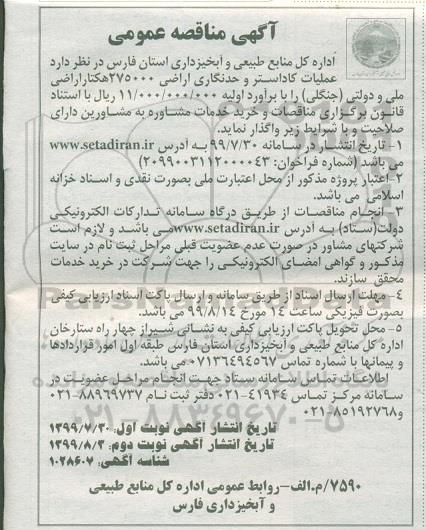 آگهی مناقصه عمومی
اداره کل منابع طبیعی و آبخیزداری استان فارس در نظر دارد
عملیات کاداستر و حدنگاری اراضی ۲۷۵۰۰۰هکتاراراضی
ملی و دولتی (جنگلی) را با برآورد اولیه ۱۱/۰۰۰/۰۰۰/۰۰۰ ریال با استناد
قانون برگزاری مناقصات و خرید خدمات مشاوره به مشاورین دارای
صلاحیت و با شرایط زیر واگذار نماید.
۱- تاریخ انتشار در سامانه ۹۹/۷/۳۰ به آدرس www.setadiran.ir
می باشد (شماره فراخوان: ۲۰۹۹۰۰۳۱۱۲۰۰۰۰۴۳)
۲-اعتبار پروژه مذکور از محل اعتبارات ملی بصورت نقدی و اسناد خزانه
اسلامی می باشد.
۳- انجام مناقصات از طریق درگاه سامانه تدارکات الکترونیکی
دولت(ستاد) به آدرس www.setadiran.irمی باشد و لازم است
شرکتهای مشاور در صورت عدم عضویت قبلی مراحل ثبت نام در سایت
مذکور و گواهی امضای الکترونیکی را جهت شرکت در خرید خدمات
محقق سازند.
۴- مهلت ارسال اسناد از طریق سامانه و ارسال پاکت اسناد ارزیابی کیفی
بصورت فیزیکی ساعت ۱۴ مورخ ۹۹/۸/۱۴ می باشد.
۵- محل تحویل پاکت ارزیابی کیفی به نشانی شیراز چهار راه ستارخان
اداره کل منابع طبیعی و آبخیزداری استان فارس طبقه اول امور قراردادها
و پیمانها با شماره تماس ۰۷۱۳۶۴۹۴۵۶۷ می باشد.
اطلاعات تماس سامانه ستاد جهت انجام مراحل عضویت در
سامانه مرکز تماس ۴۱۹۳۴-۰۲۱ دفتر ثبت نام ۸۸۹۶۹۷۳۷-۰۲۱
و۸۵۱۹۲۷۶۸-۰۲۱
تاریخ انتشار آگهی نوبت اول: ۱۳۹۹/۷/۳۰
تاریخ انتشار آگهی نوبت دوم: ۱۳۹۹/۸/۳
شناسه آگهی: ۱۰۲۸۶۰۷
۷۵۹۰/م.الف-روابط عمومی اداره کل منابع طبیعی
و آبخیزداری فارس
۰۲۱-۸۸۳۴۹۶۷۰-۵